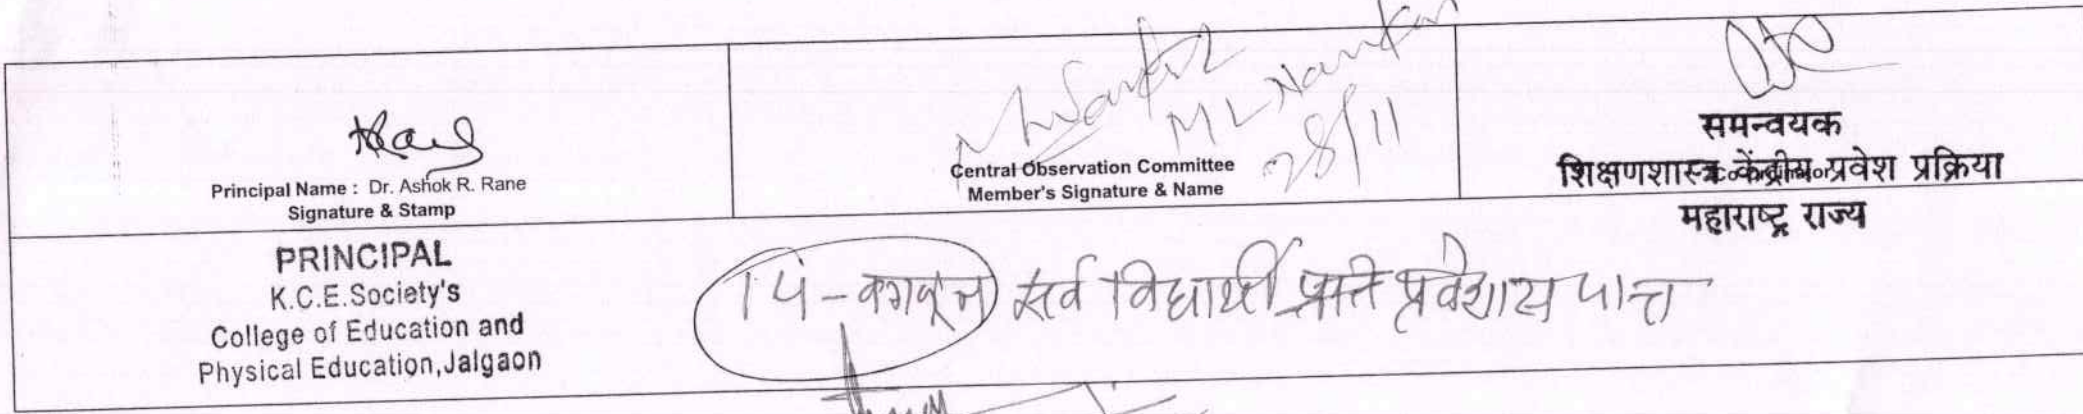 Principal Name : Dr. Ashok R. Rane
Signature & Stamp
PRINCIPAL
K.C.E.Society's
College of Education and
Physical Education,Jalgaon
ML Nankar
28/11
Central Observation Committee
Member's Signature & Name
समन्वयक
शिक्षणशास्त्र केंद्रीय प्रवेश प्रक्रिया
महाराष्ट्र राज्य
सर्व विद्यार्थी प्रवेशास पात्र